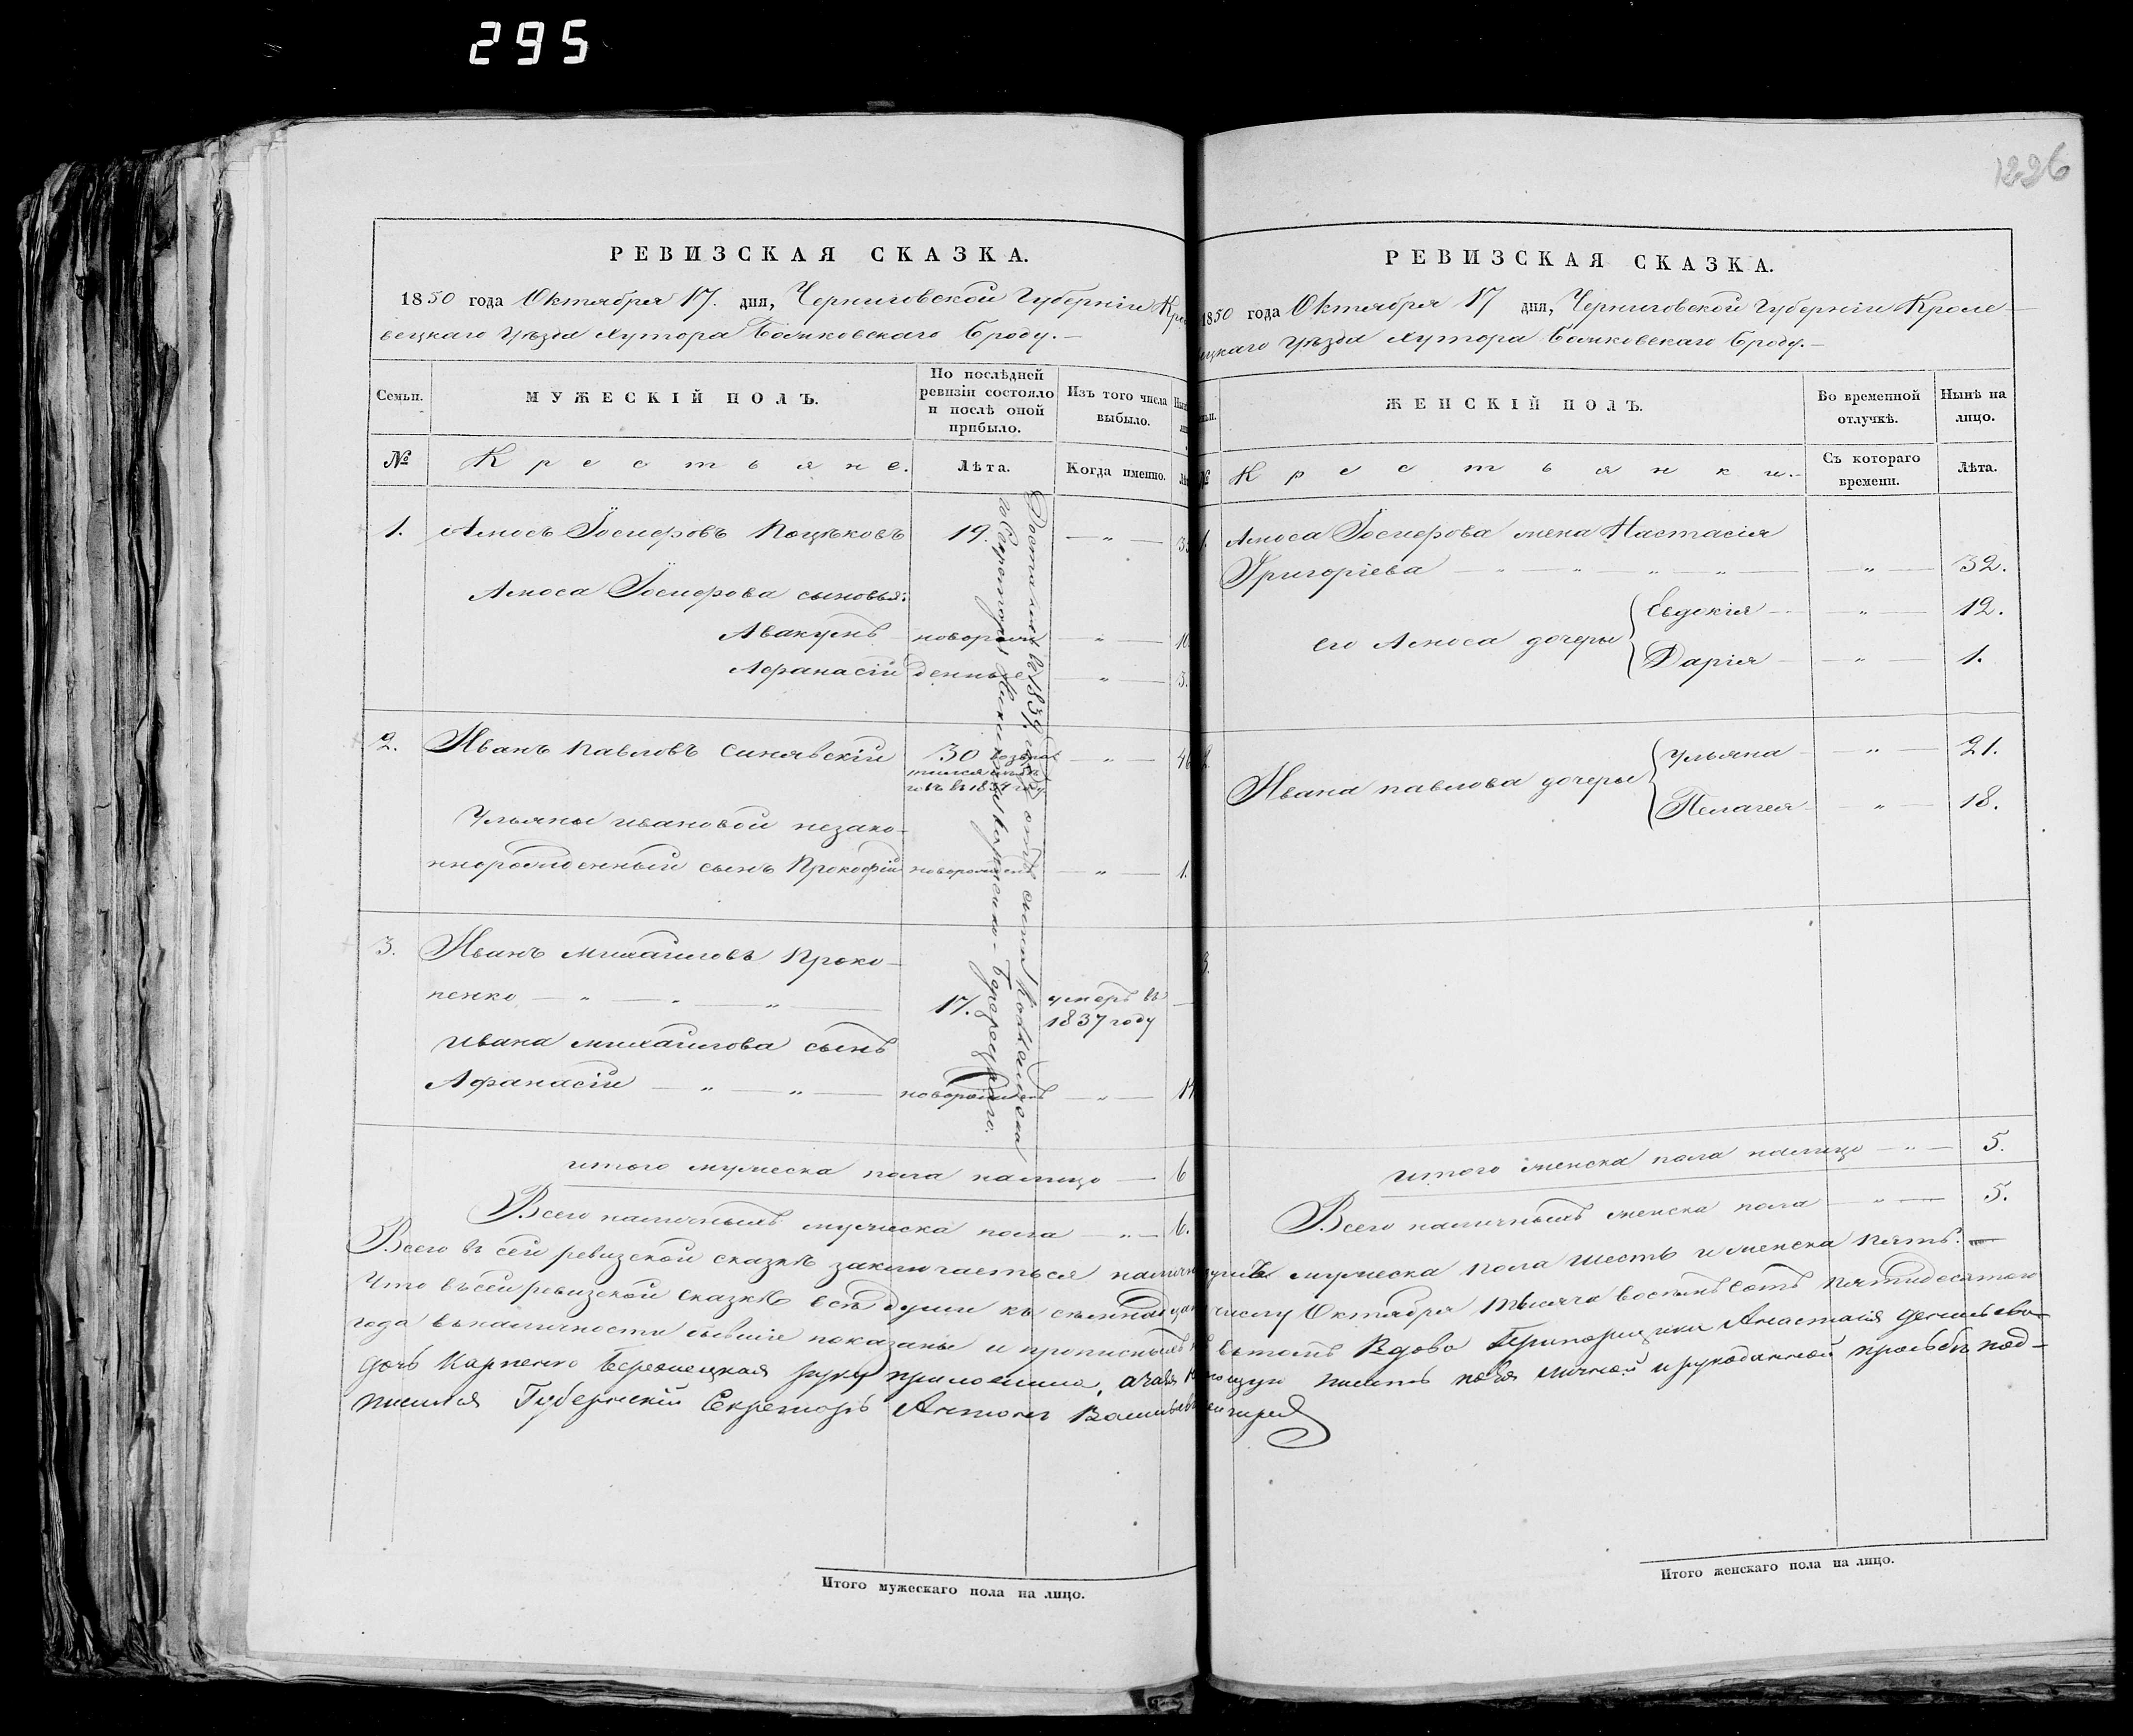 295
1226
РЕВИЗСКАЯ СКАЗКА.
1850 года Октября 17. дня, Черниговской Губерніи Кро
вецкаго уѣзда хутора Божковскаго Броду.
Семьи.
МУЖЕСКІЙ ПОЛЪ.
По послѣдней ревизіи состояло и послѣ оной прибыло.
Изъ того числа выбыло.
№
Крестьяне.
Лѣта.
Когда именно.
1. Амосъ Іосифовъ Коцюковъ 19. — „ —
Амоса Іосифова сыновья:
Авакумъ новорож — „ — 10
Афанасій денные — „ — 3.
2. Иванъ Павловъ Синявскій 30 возвра — „ — 46
тился изъ бѣ
говъ въ 1837 году
Ульяны Ивановой незако-
ннорожденный сынъ Прокофій новорожденъ — „ — 1.
3. Иванъ Михайловъ Проко-
пенко — „ — „ — „ — 17. умеръ въ —
1837 году
Ивана Михайлова сынъ
Афанасій — „ — „ — новорожденъ — „ — 14
Достались въ 1839 году отъ сына Коллежска
го Секретаря
Итого мужеска пола налицо — 6
Всего наличныхъ мужеска пола — „ — 6.
РЕВИЗСКАЯ СКАЗКА.
1850 года Октября 17 дня, Черниговской Губерніи Кроле-
вецкаго уѣзда хутора Божковскаго Броду.
ЖЕНСКІЙ ПОЛЪ.
Во временной отлучкѣ.
Нынѣ на лицо.
№
Крестьянки.
Съ котораго времени.
Лѣта.
1. Амоса Іосифова жена Настасія
Григоріева — „ — „ — „ — „ — 32.
его Амоса дочеры
Евдокія — „ — 12.
Дарія — „ — 1.
Ивана Павлова дочеры
Ульяна — „ — 21.
Пелагея — „ — 18.
3.
Итого женска пола налицо — „ — 5.
Всего наличныхъ женска пола — „ — 5.
Всего въ сей ревизской сказкѣ заключается наличн душъ мужеска пола шесть и женска пять.
Что въ сей ревизской сказкѣ всѣ души къ семнадцат числу Октября тысяча восемь сотъ пятидесятого
года въ наличности бывшіе показаны и прописныхъ нѣтъ въ томъ Вдова Анастасія
дочь Карпенко Бережецкая руку приложила, а за не писать по ея личной и рукоданной прозьбѣ под-
писался Губернскій Секретарь Антонъ Васильевъ
Итого мужескаго пола на лицо.
Итого женскаго пола на лицо.